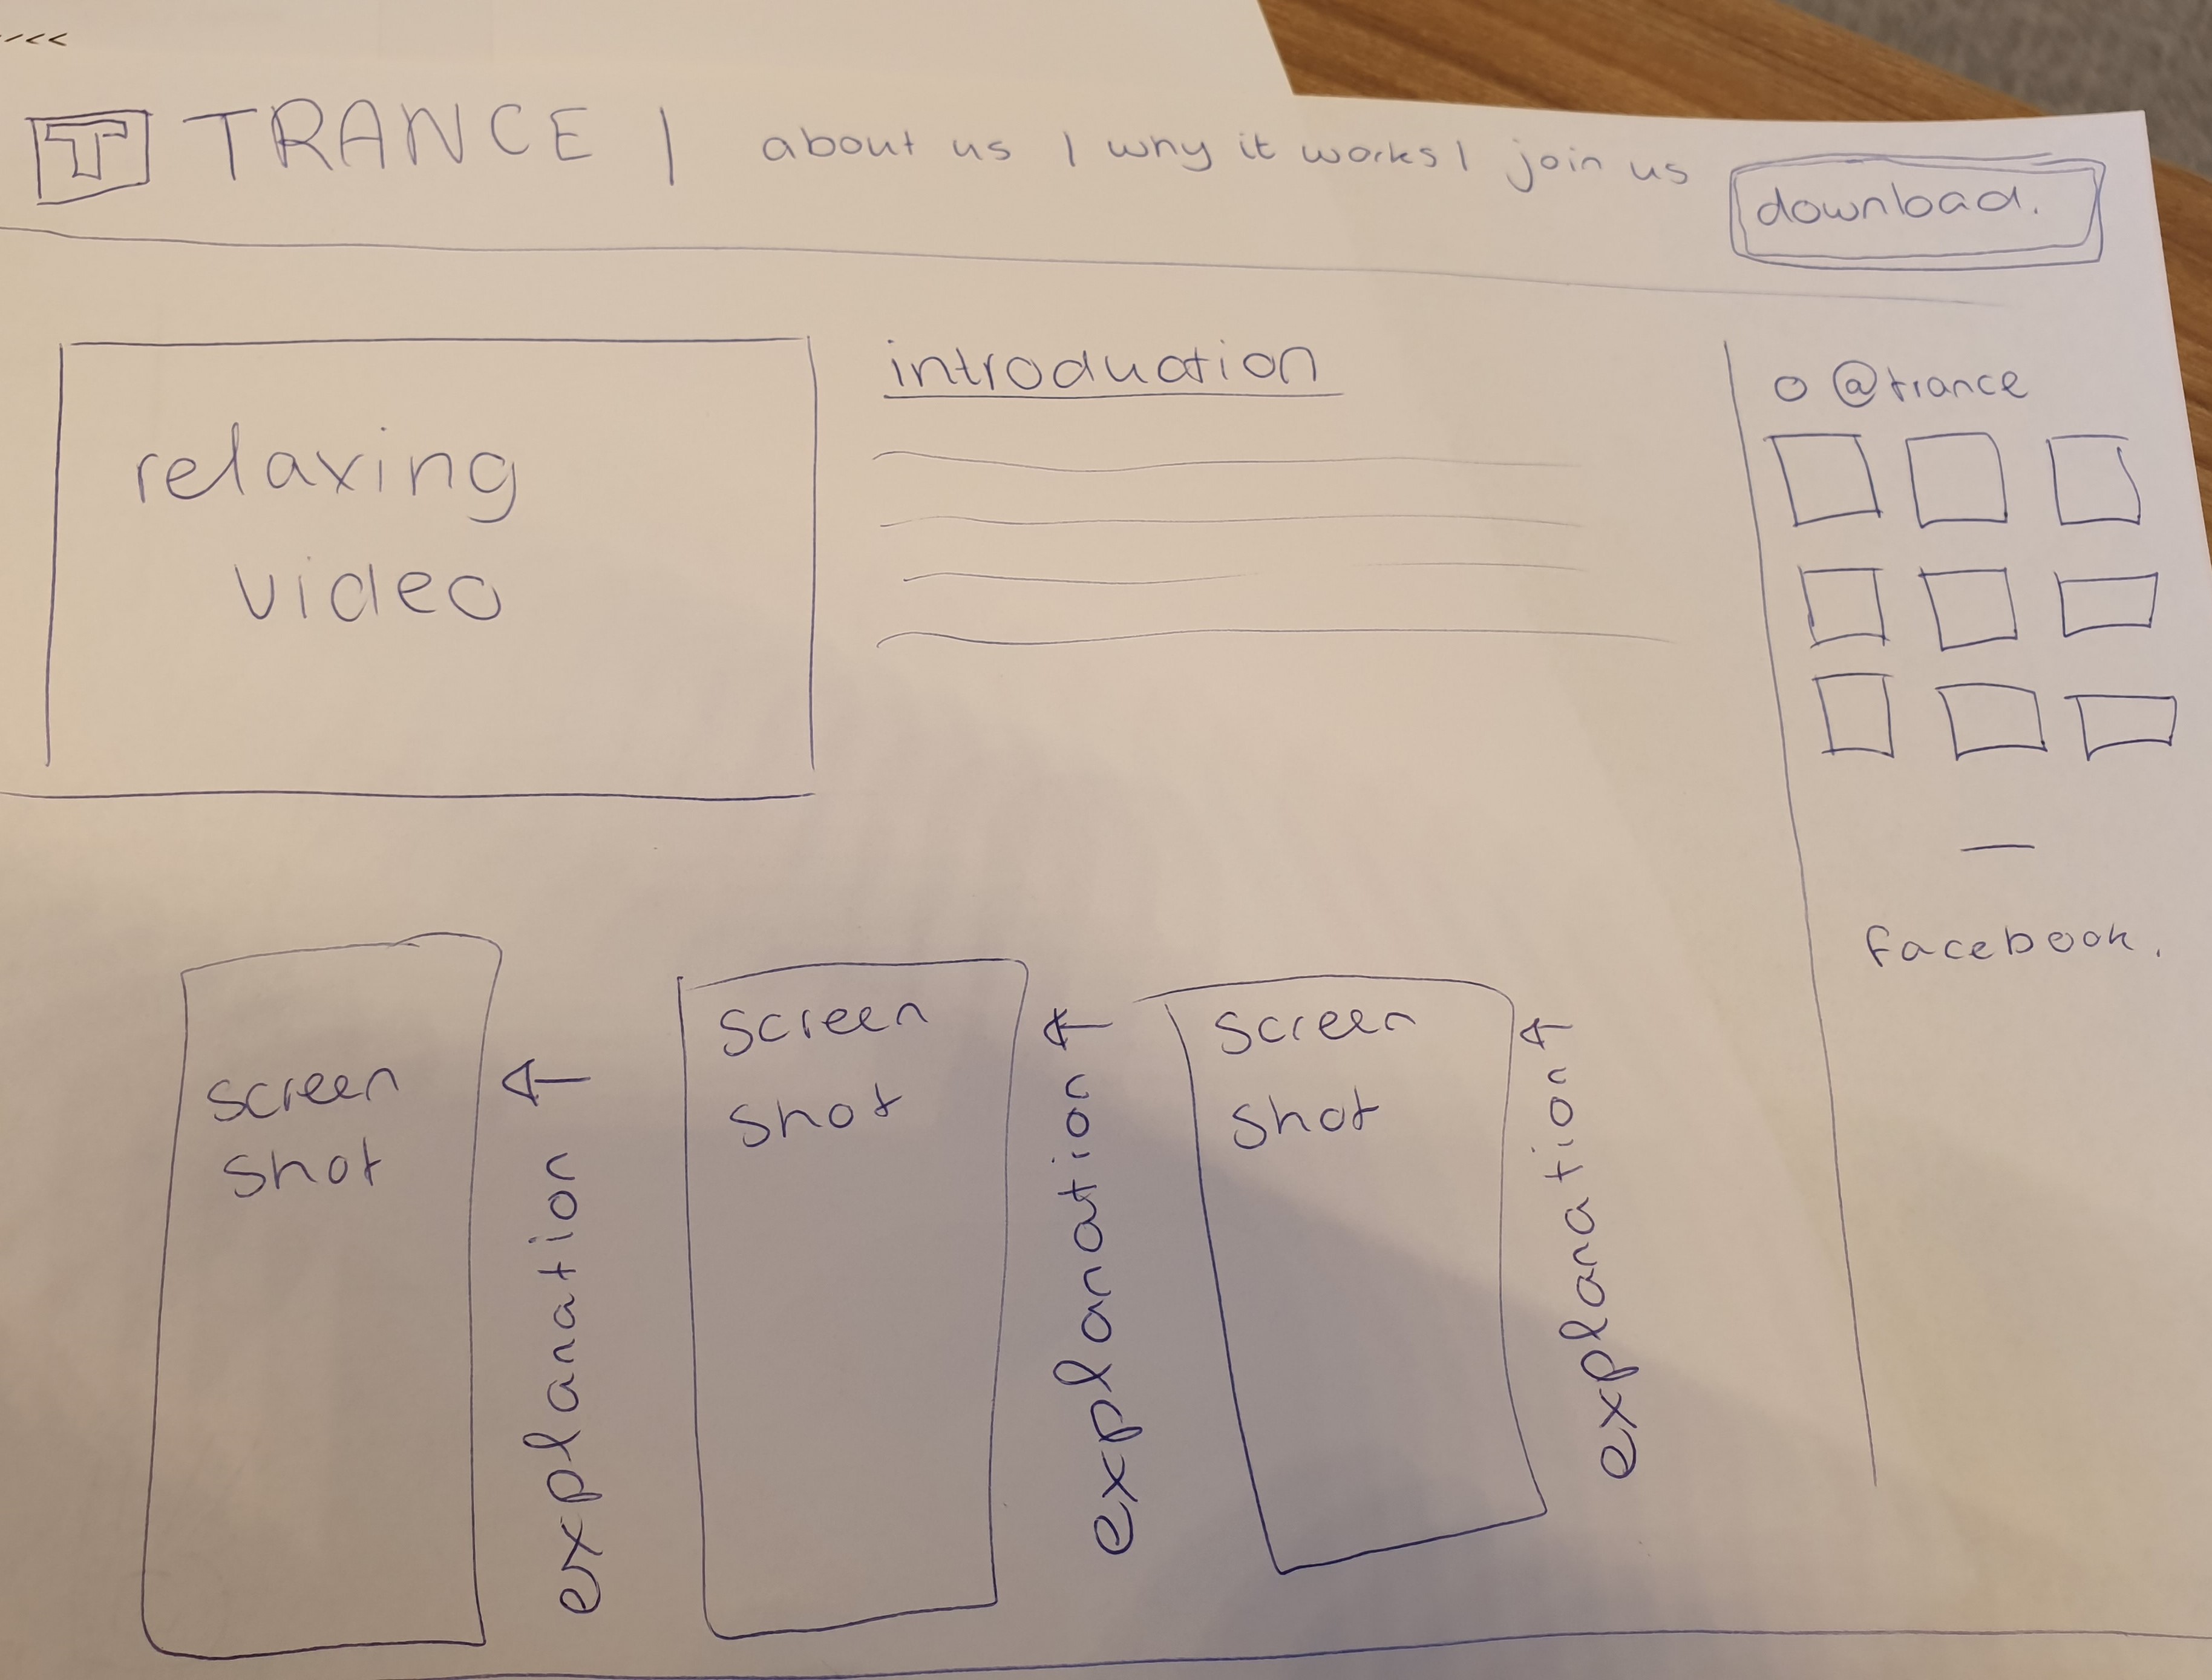 T TRANCE | about us | why it works | join us download.
relaxing
video
introduction
@trance
facebook.
screen
shot
explanation
screen
shot
explanation
screen
shot
explanation